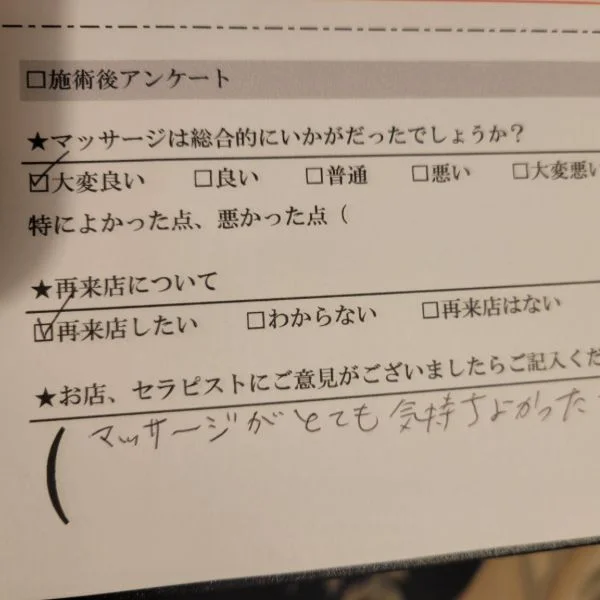 □施術後アンケート
★マッサージは総合的にいかがだったでしょうか?
☑大変良い □良い □普通 □悪い □大変悪い
特によかった点、悪かった点(
★再来店について
☑再来店したい □わからない □再来店はない
★お店、セラピストにご意見がございましたらご記入くだ
(マッサージがとても気持ちよかった